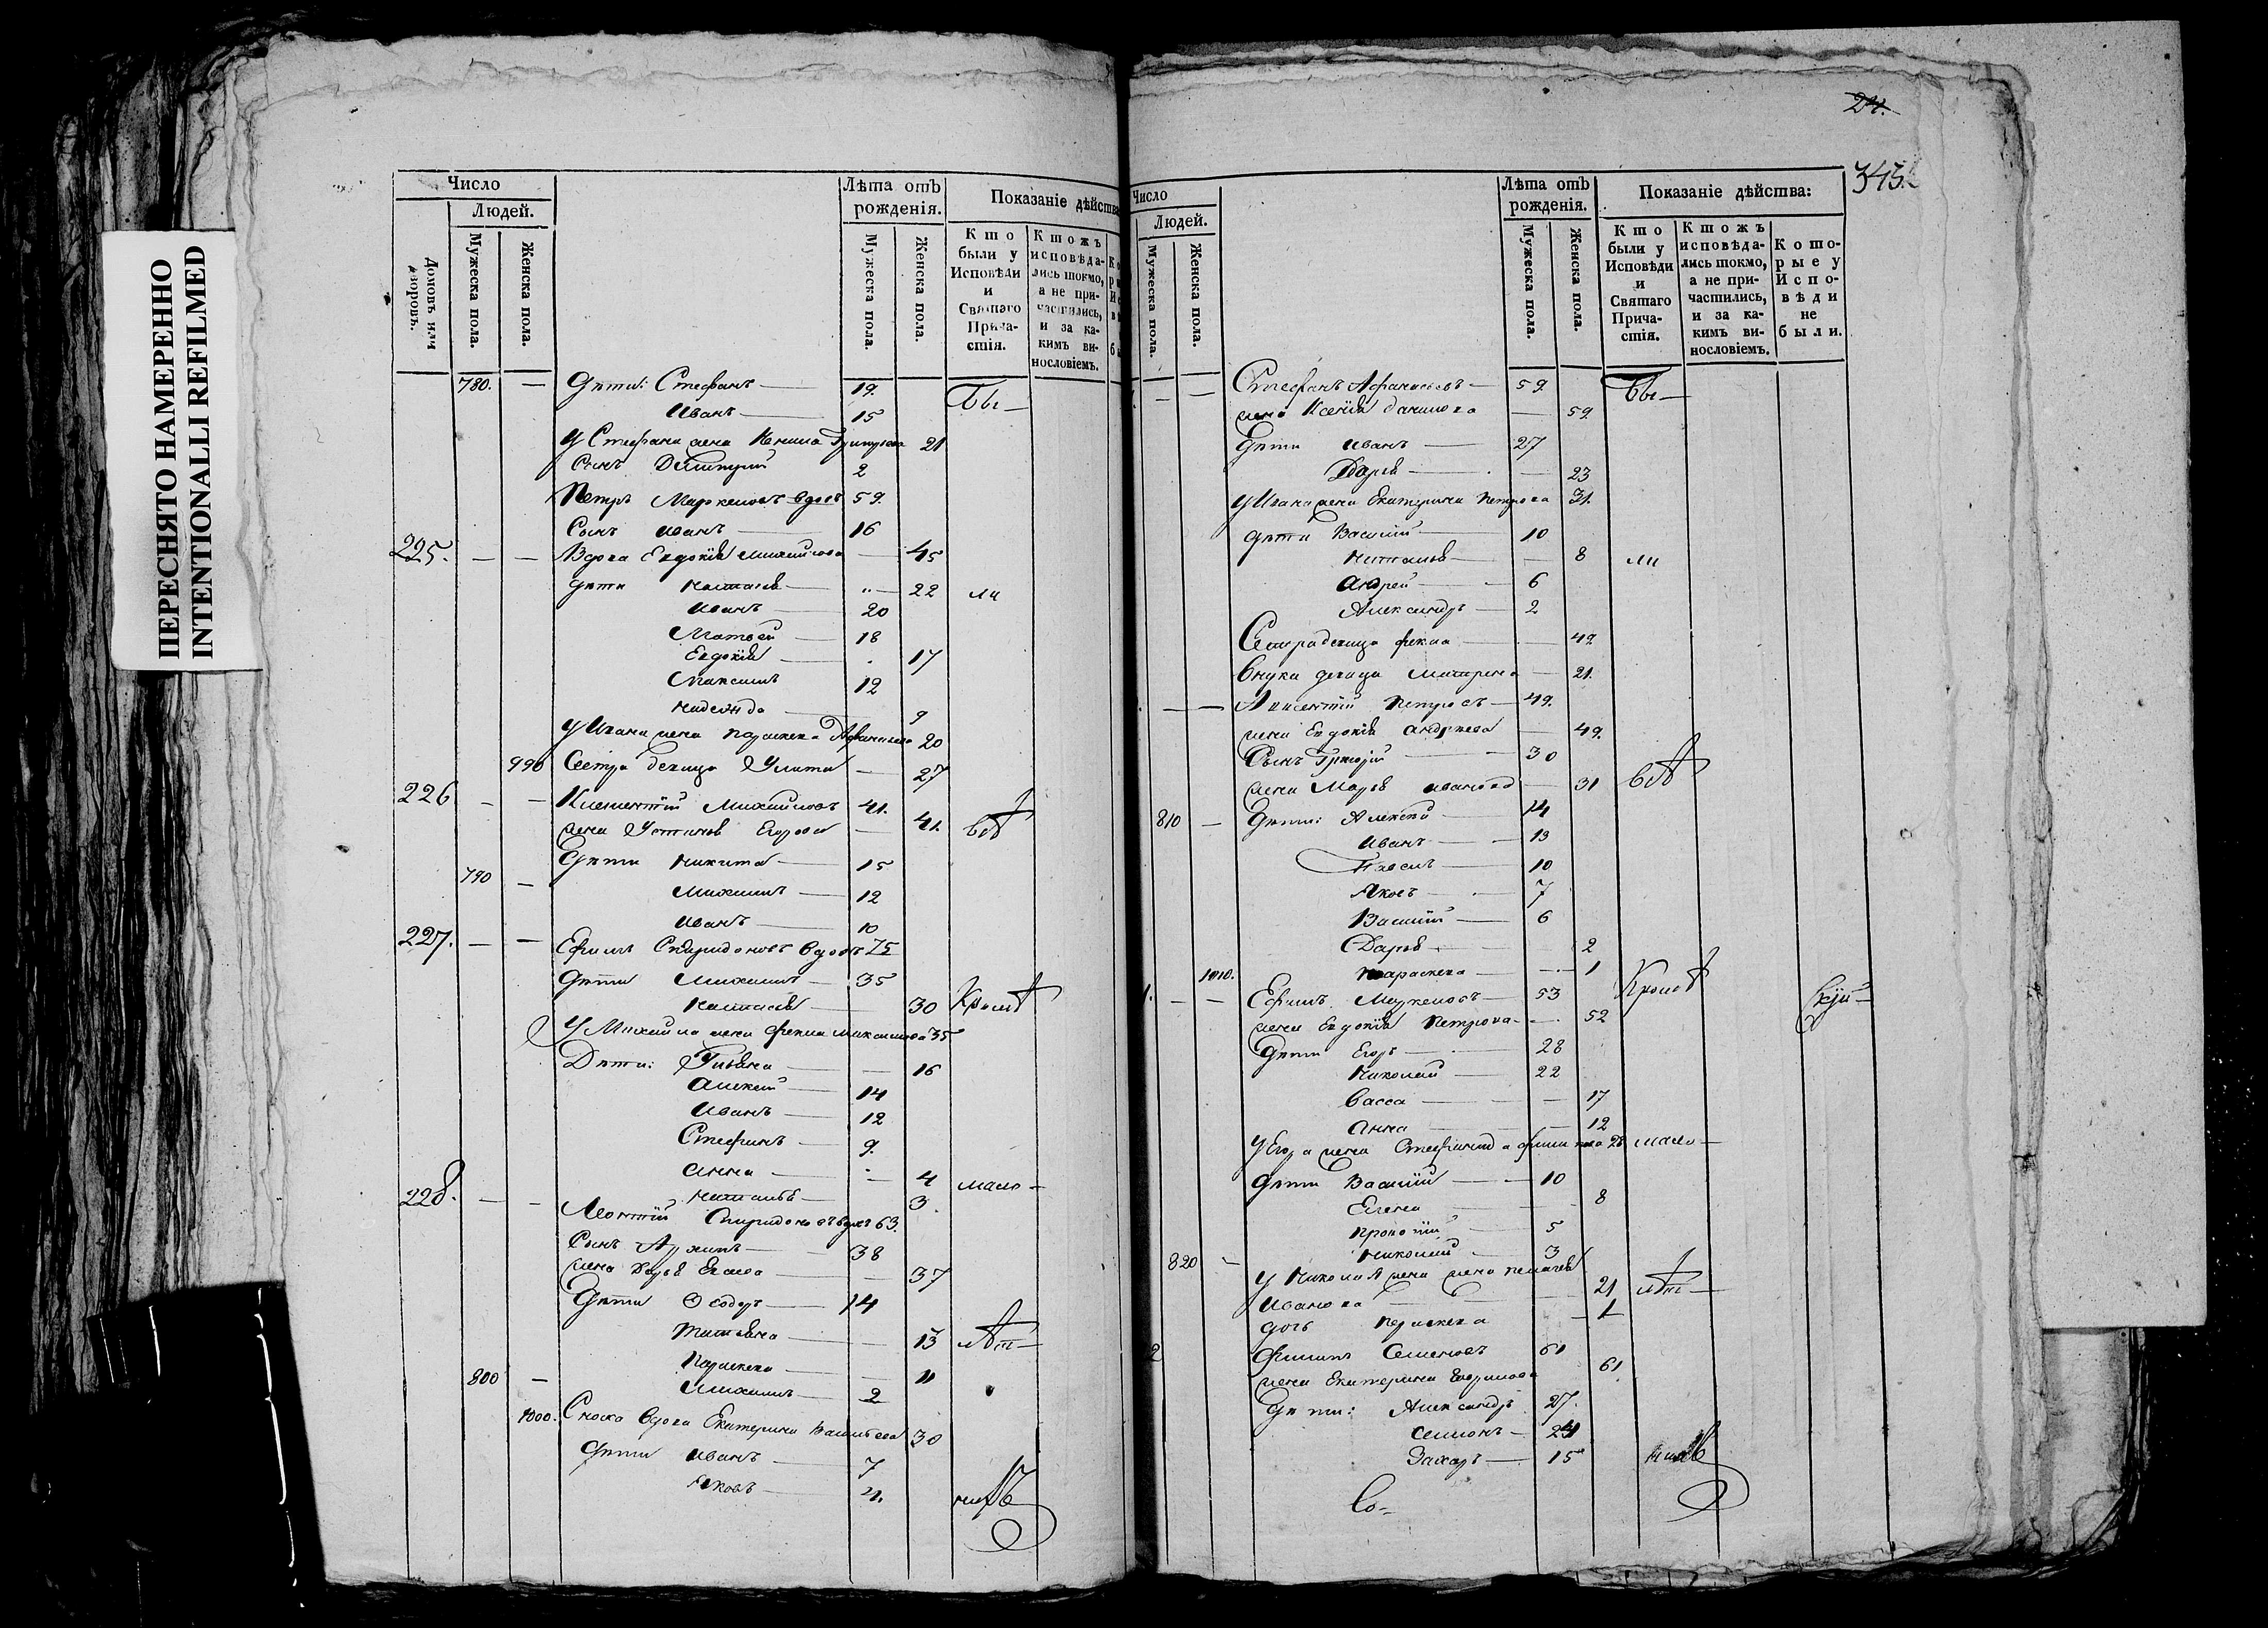 ПЕРЕСНЯТО НАМЕРЕННО
INTENTIONALLI REFILMED
Число
Людей.
Домовъ или дворовъ.
Мужеска пола.
Женска пола.
Лѣта отъ рожденія.
Мужеска пола.
Женска пола.
Показаніе дѣйства
Кто были у Исповѣди и Святаго Прича-стія.
Ктожъ исповѣда-лись токмо, а не при-частились, и за ка-кимъ ви-нословіемъ.
780. — Дѣти: Стефанъ — 19. Бы—
Иванъ — 15
У Стефана жена 21
Сынъ Димитрій 2
Петръ Маркеловъ вдовъ 59.
Сынъ Иванъ — 16
225. — — Вдова Евдокія Михайлова — 45
дѣти Наталья — 22 ли
Иванъ — 20
Матвей — 18
Евдокія — 17
Максимъ 12
Надежда — 9
У Ивана жена Параскева Афанасьева 20
990 Сестра девица Улита — 27
226 — — Климентій Михайловъ 41.
жена Устинья Егорова — 41. всѣ
Дѣти Никита — 15
790 — Михаилъ — 12
Иванъ — 10
227. — — Ефимъ Спиридоновъ вдовъ 75
Дѣти Михаилъ — 35
Наталья — 30 Кромѣ
У Михаила жена Фекла Максимова 35
Дѣти: — 16
Алексей — 14
Иванъ — 12
Стефанъ — 9.
Анна — 4 мало—
Наталья — 3.
228. — — Леонтій Спиридоновъ вдовъ 63.
Сынъ Архипъ — 38
жена Дарья — 37
Дѣти Ѳеодоръ — 14
Татьяна — 13 лѣт—
Параскева — 11
800 — Михаилъ — 2
1000. Сноха вдова Екатерина Васильева 30
Дѣти Иванъ — 7
Яковъ — 4. нихъ
24.
345.
Число
Людей.
Мужеска пола.
Женска пола.
Лѣта отъ рожденія.
Мужеска пола.
Женска пола.
Показаніе дѣйства:
Кто были у Исповѣди и Святаго Прича-стія.
Ктожъ исповѣда-лись токмо, а не при-частились, и за ка-кимъ ви-нословіемъ.
Кото-рые у Испо-вѣди не были.
— — Стефанъ Афанасьевъ — 59. Бы—
жена Ксенія Данилова — 59.
Дѣти Иванъ — 27
Дарья — 23
У Ивана жена Екатерина Петрова 31.
дѣти Василій — 10
Наталья — 8 ли
Андрей — 6
Александръ — 2
Сестра девица Фекла — 49.
Внука девица Матрена — 21.
— — Петровъ — 49.
жена Евдокія Андреева — 49.
Сынъ Григорій — 30
жена Марья Иванова — 31 всѣ
810 — Дѣти: Алексѣй — 14
Иванъ — 13
Павелъ — 10
Яковъ — 7
Василій — 6
Дарья — 2
1010. Параскева — 1
— — Ефимъ Маркеловъ — 53 Кромѣ
жена Евдокія Петрова — 52
Дѣти Егоръ — 28
Николай — 22
Васса — 17
Анна — 12
У Егора жена Стефанида 28 мало—
Дѣти Василій — 10
Елена — 8
5
820 — Николай — 3
У Николая жена жена Пелагея
Иванова — 21 лѣт—
дочь Параскева — 1
2 Филипъ Семеновъ 61
жена Екатерина 61
Дѣти: Александръ 27.
Семионъ — 24
Захаръ — 15 нихъ
Со-